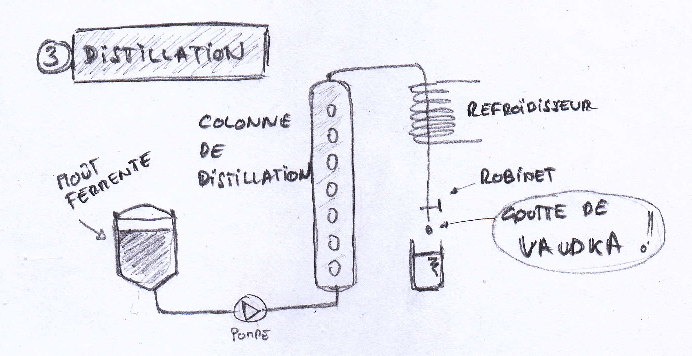 3 DISTILLATION
COLONNE
DE
DISTILLATION
REFROIDISSEUR
MOÛT
FERMENTE
ROBINET
GOUTTE DE
VAUDKA !!
POMPE